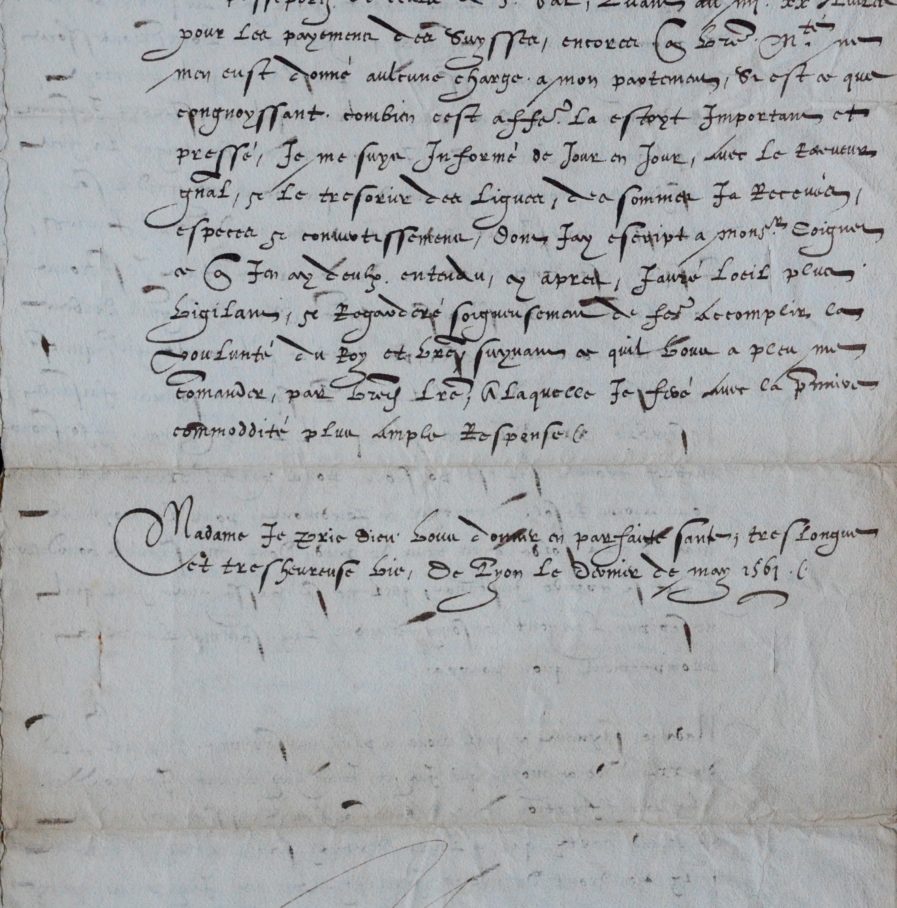 pour les payemens des Suysses, encores q̃ vr̃e Mte ne
men eust donné aulcune charge a mon partement, Si est ce que
congnoyssant combien cest affre. la estoyt Important et
pressé, Je me suys Informé de Jour en Jour, avec le Receveur
gnãl, & le tresorier des Ligues, des sommes Ja Receues,
especes & convertissemens, dont Jay escript a monsr.
ce q̃ Jen ay deulx entendu, cy apres, Jauré Loeil plus
vigilant, & Regarderé soigneusement de fer accomplir la
voulunté du Roy et vr̃e, suyvant ce quil vous a pleu me
comander, par vr̃e lr̃e, A laquelle Je feré avec la p̃miere
commoddité plus ample Response
Madame Je prie dieu vous donner en parfaicte santé, treslongue
et tresheureuse vie, De Lyon le dernier de may 1561.